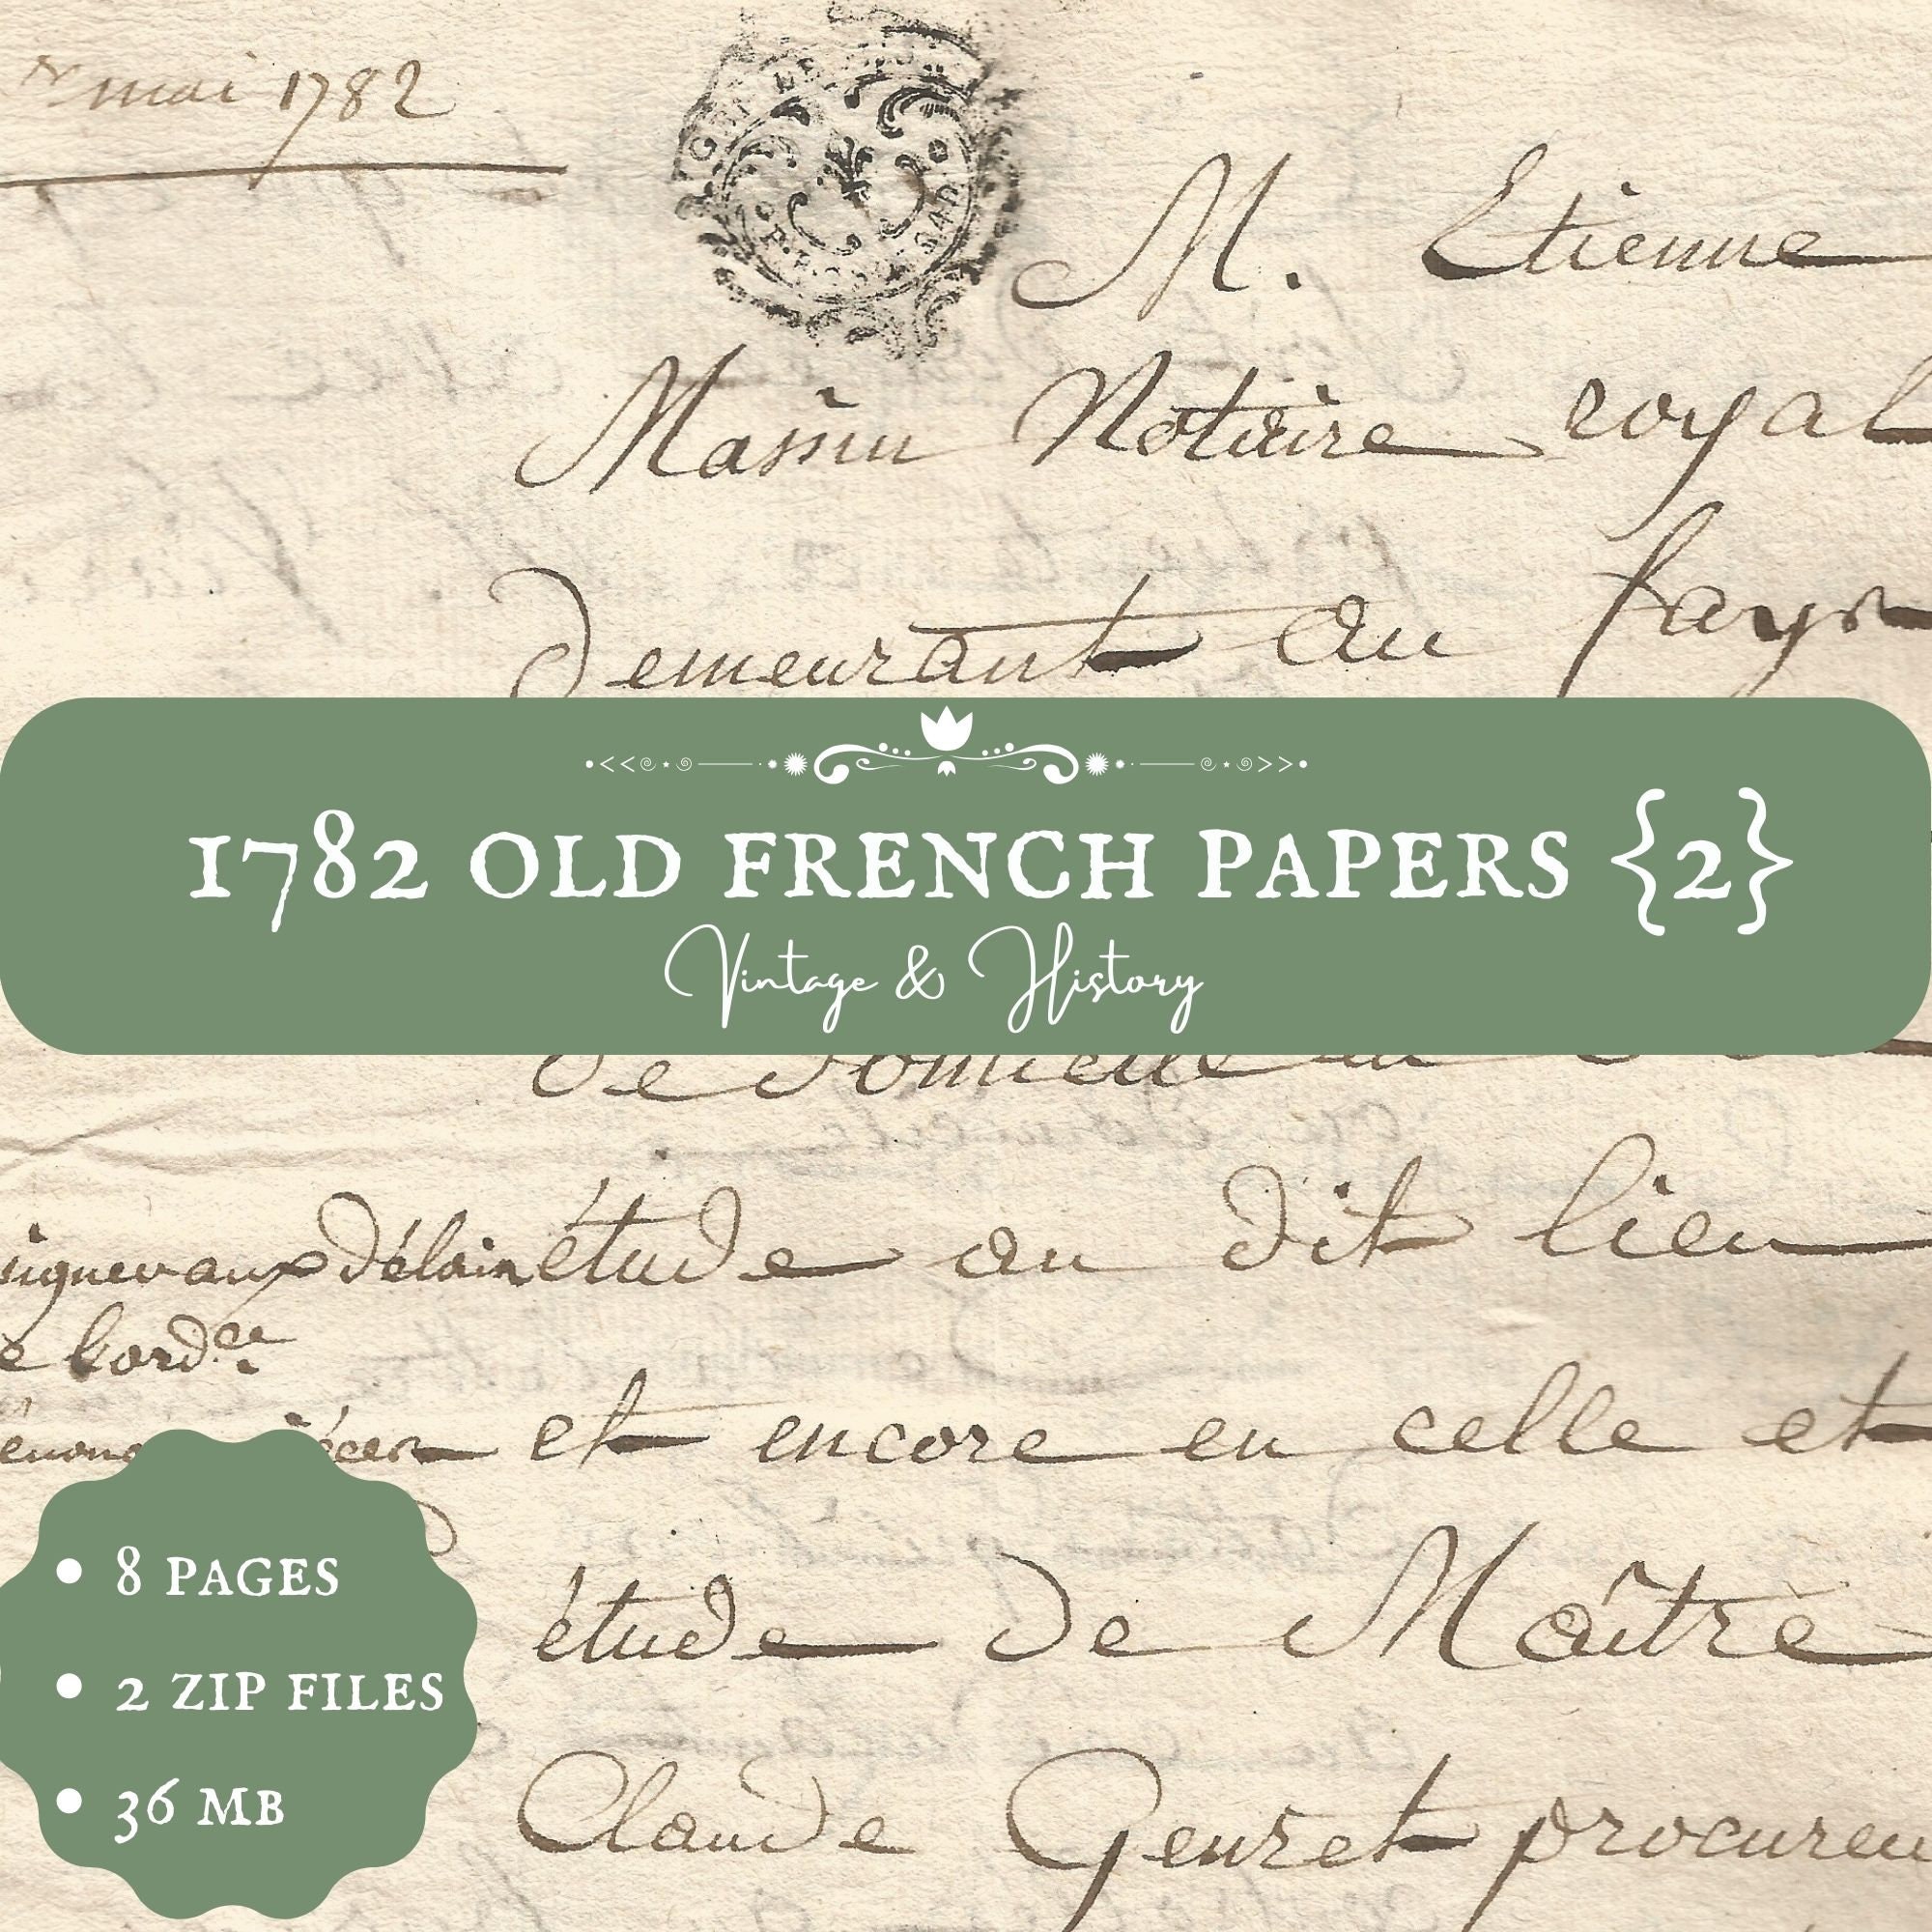 mai 1782
M. Etienne
Massin Notaire royal
demeurant au fays
1782 OLD FRENCH PAPERS {2}
Vintage & History
de domicile
étude au dit lieu
signer aux délais
bord.er
et encore en celle et
étude de Maître
Claude Genret procureu
• 8 PAGES
• 2 ZIP FILES
• 36 MB